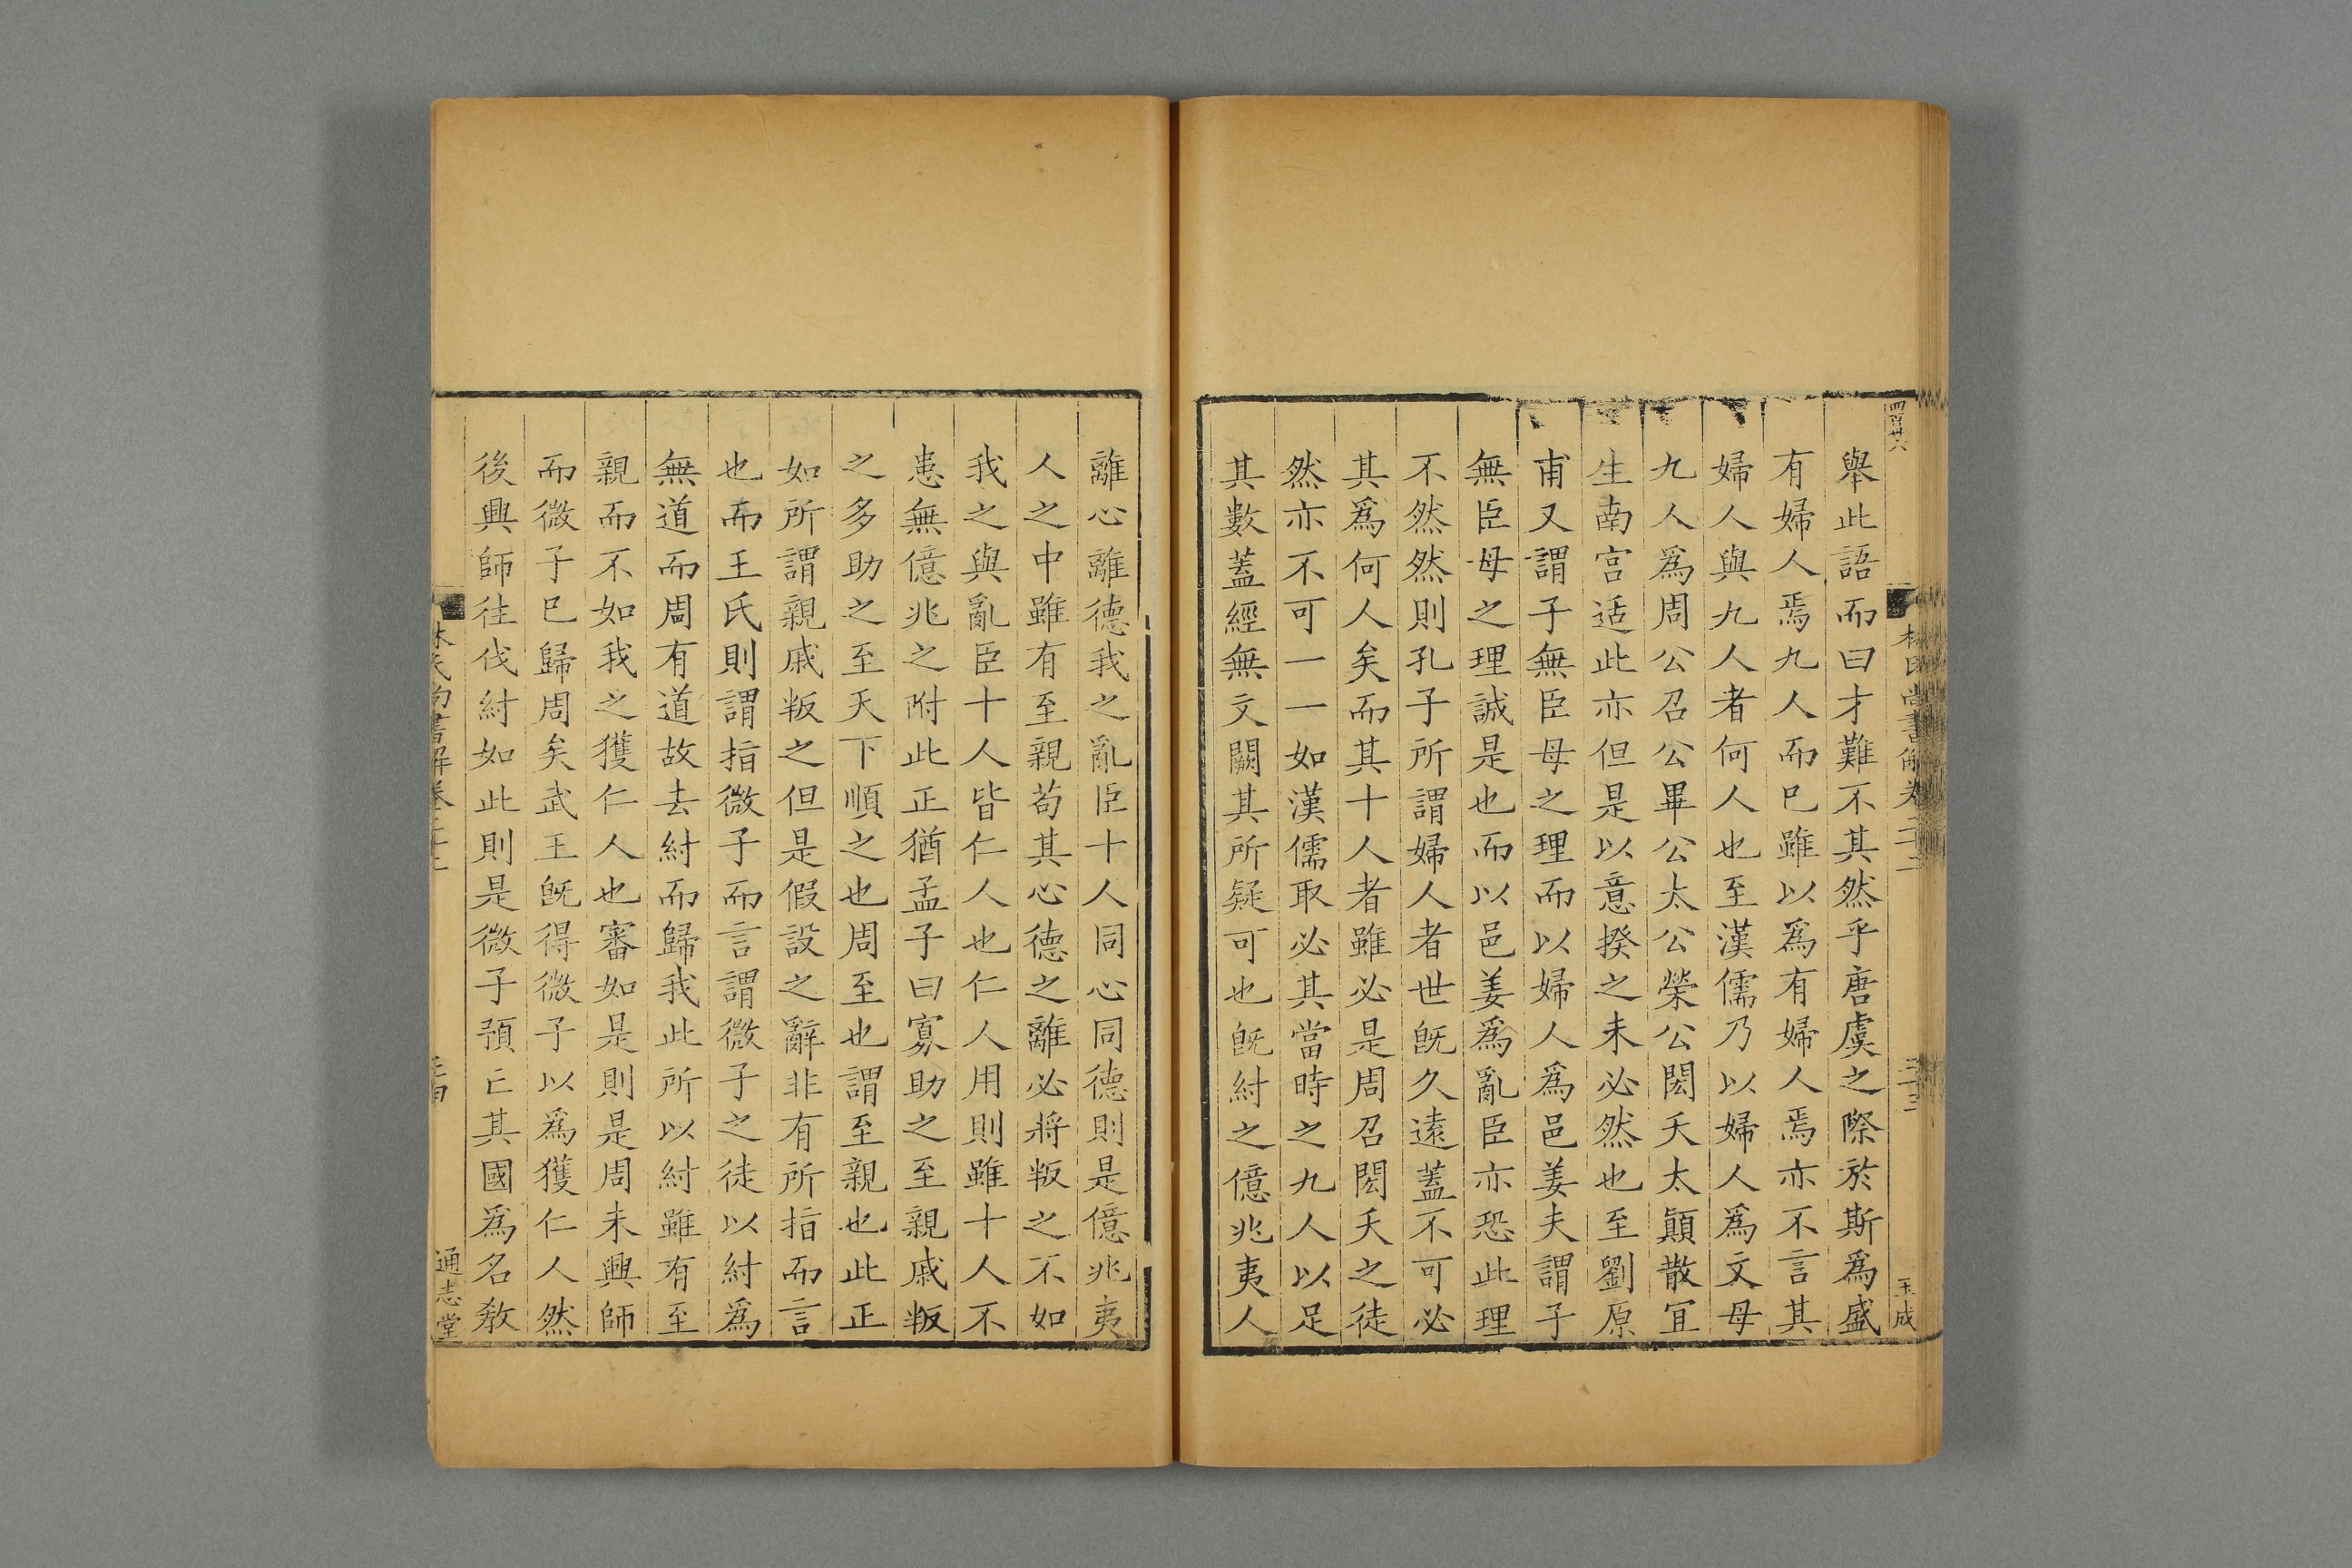 舉此語而曰才難不其然乎唐虞之際於斯爲盛
有婦人焉九人而巳雖以爲有婦人焉亦不言其
婦人與九人者何人也至漢儒乃以婦人爲文母
九人爲周公召公畢公太公榮公閎夭太顚散宜
生南宫适此亦但是以意揆之未必然也至劉原
甫又謂子無臣母之理而以婦人爲邑姜夫謂子
無臣母之理誠是也而以邑姜爲亂臣亦恐此理
不然然則孔子所謂婦人者世旣久遠蓋不可必
其爲何人矣而其十人者雖必是周召閎夭之徒
然亦不可一一如漢儒取必其當時之九人以足
其數蓋經無文闕其所疑可也旣紂之億兆夷人
離心離德我之亂臣十人同心同德則是億兆夷
人之中雖有至親苟其心德之離必將叛之不如
我之與亂臣十人皆仁人也仁人用則雖十人不
患無億兆之附此正猶孟子曰寡助之至親戚叛
之多助之至天下順之也周至也謂至親也此正
如所謂親戚叛之但是假設之辭非有所指而言
也而王氏則謂指微子而言謂微子之徒以紂爲
無道而周有道故去紂而歸我此所以紂雖有至
親而不如我之獲仁人也審如是則是周未興師
而微子巳歸周矣武王旣得微子以爲獲仁人然
後興師往伐紂如此則是微子預亡其國爲名敎
林氏尚書解卷二十二
玉成
通志堂